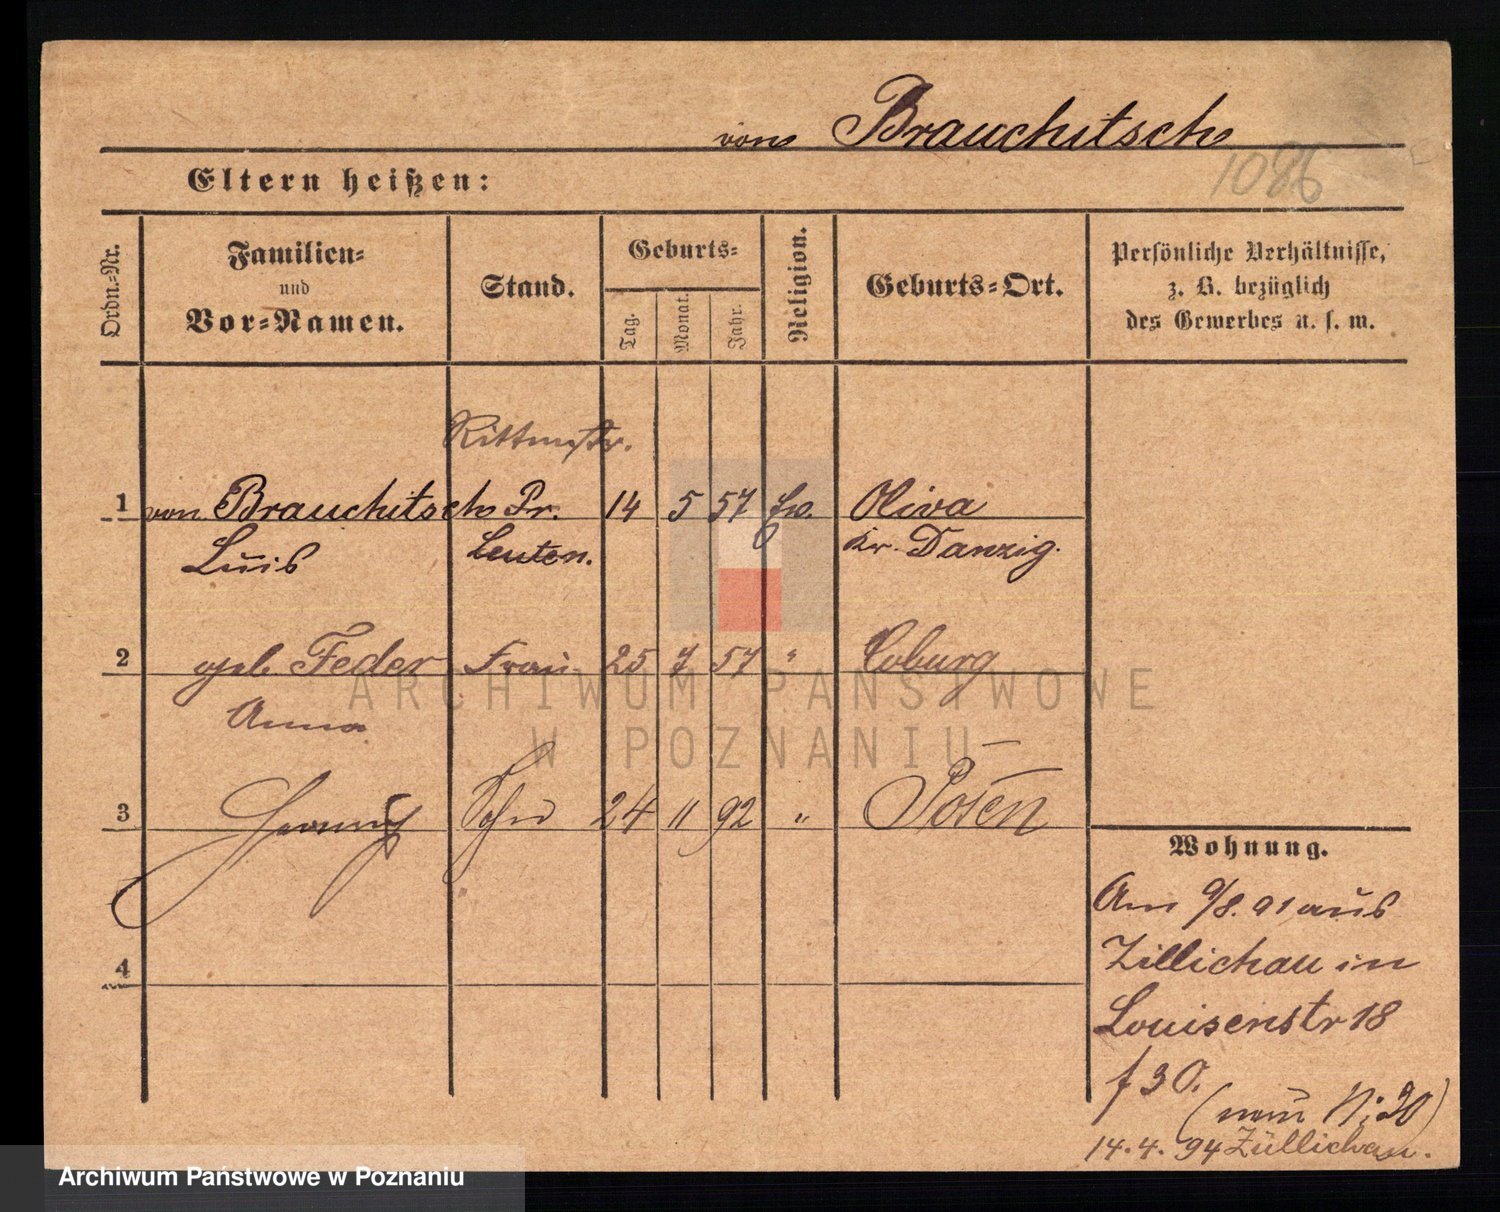 von Brauchitsch
1086
Eltern heißen:
Ordn.=Nr.
Familien=
und
Vor=Namen.
Stand.
Geburts=
Tag.
Monat.
Jahr.
Religion.
Geburts=Ort.
Persönliche Verhältnisse,
z. B. bezüglich
des Gewerbes u. s. w.
Rittmstr.
1 von Brauchitsch Pr. 14 5 57 Ev. Oliva
Luis Leuten. Kr. Danzig.
2 geb. Feder Frau 25 7 57 " Coburg
Anna
3 Sohn 24 11 92 " Posen
4
Wohnung.
Am 9/8. 91 aus
Zillichau in
Louisenstr 18
f 30.
(neu N: 20)
14.4. 94 Züllichau.
ARCHIWUM PAŃSTWOWE
W POZNANIU
Archiwum Państwowe w Poznaniu